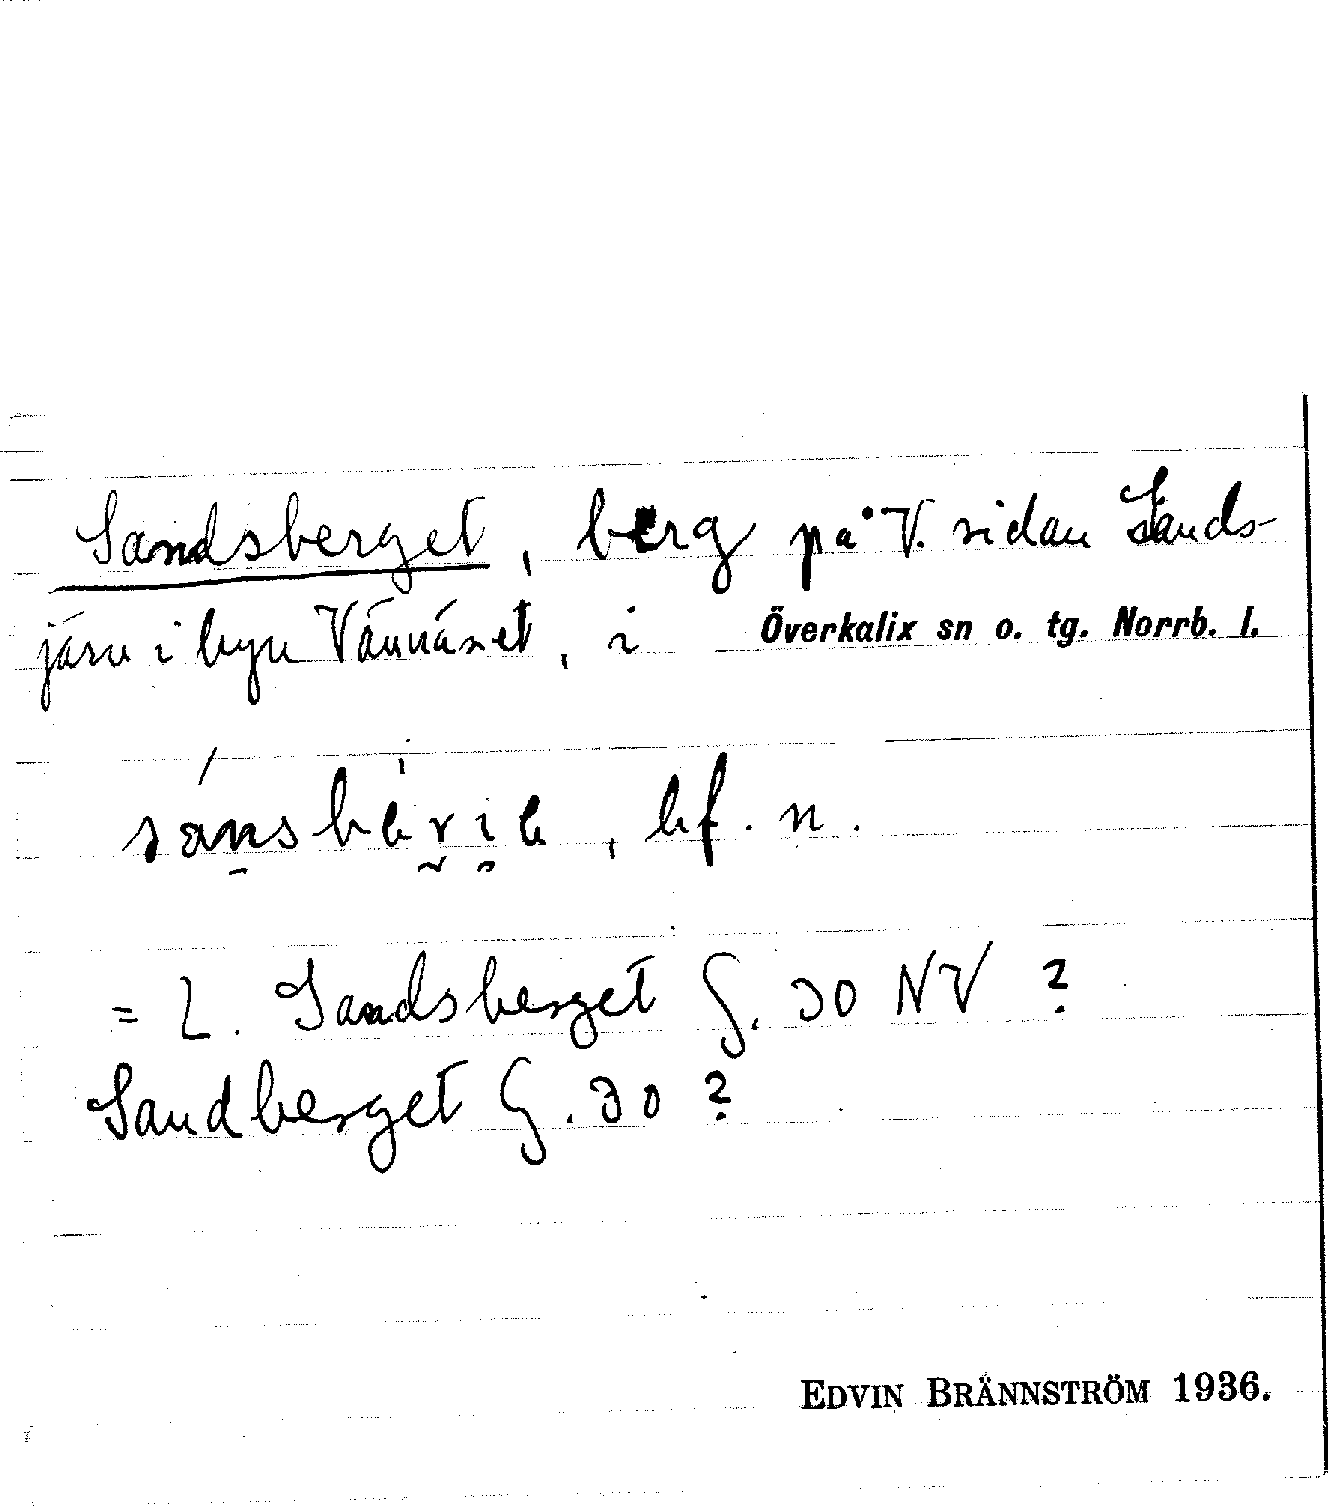 Sandsberget, berg på V. sidan Sands-
järv i byn Vännäset, i Överkalix sn o. tg. Norrb. l.
bf. n.
= L. Sandsberget G. 30 NV ?
Sandberget G. 30 ?
EDVIN BRÄNNSTRÖM 1936.